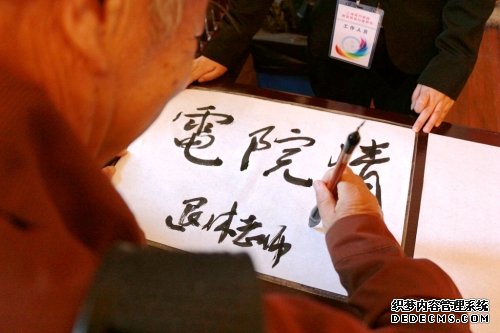 電院情
退休老师
工作人员
织梦内容管理系统
DEDECMS.COM